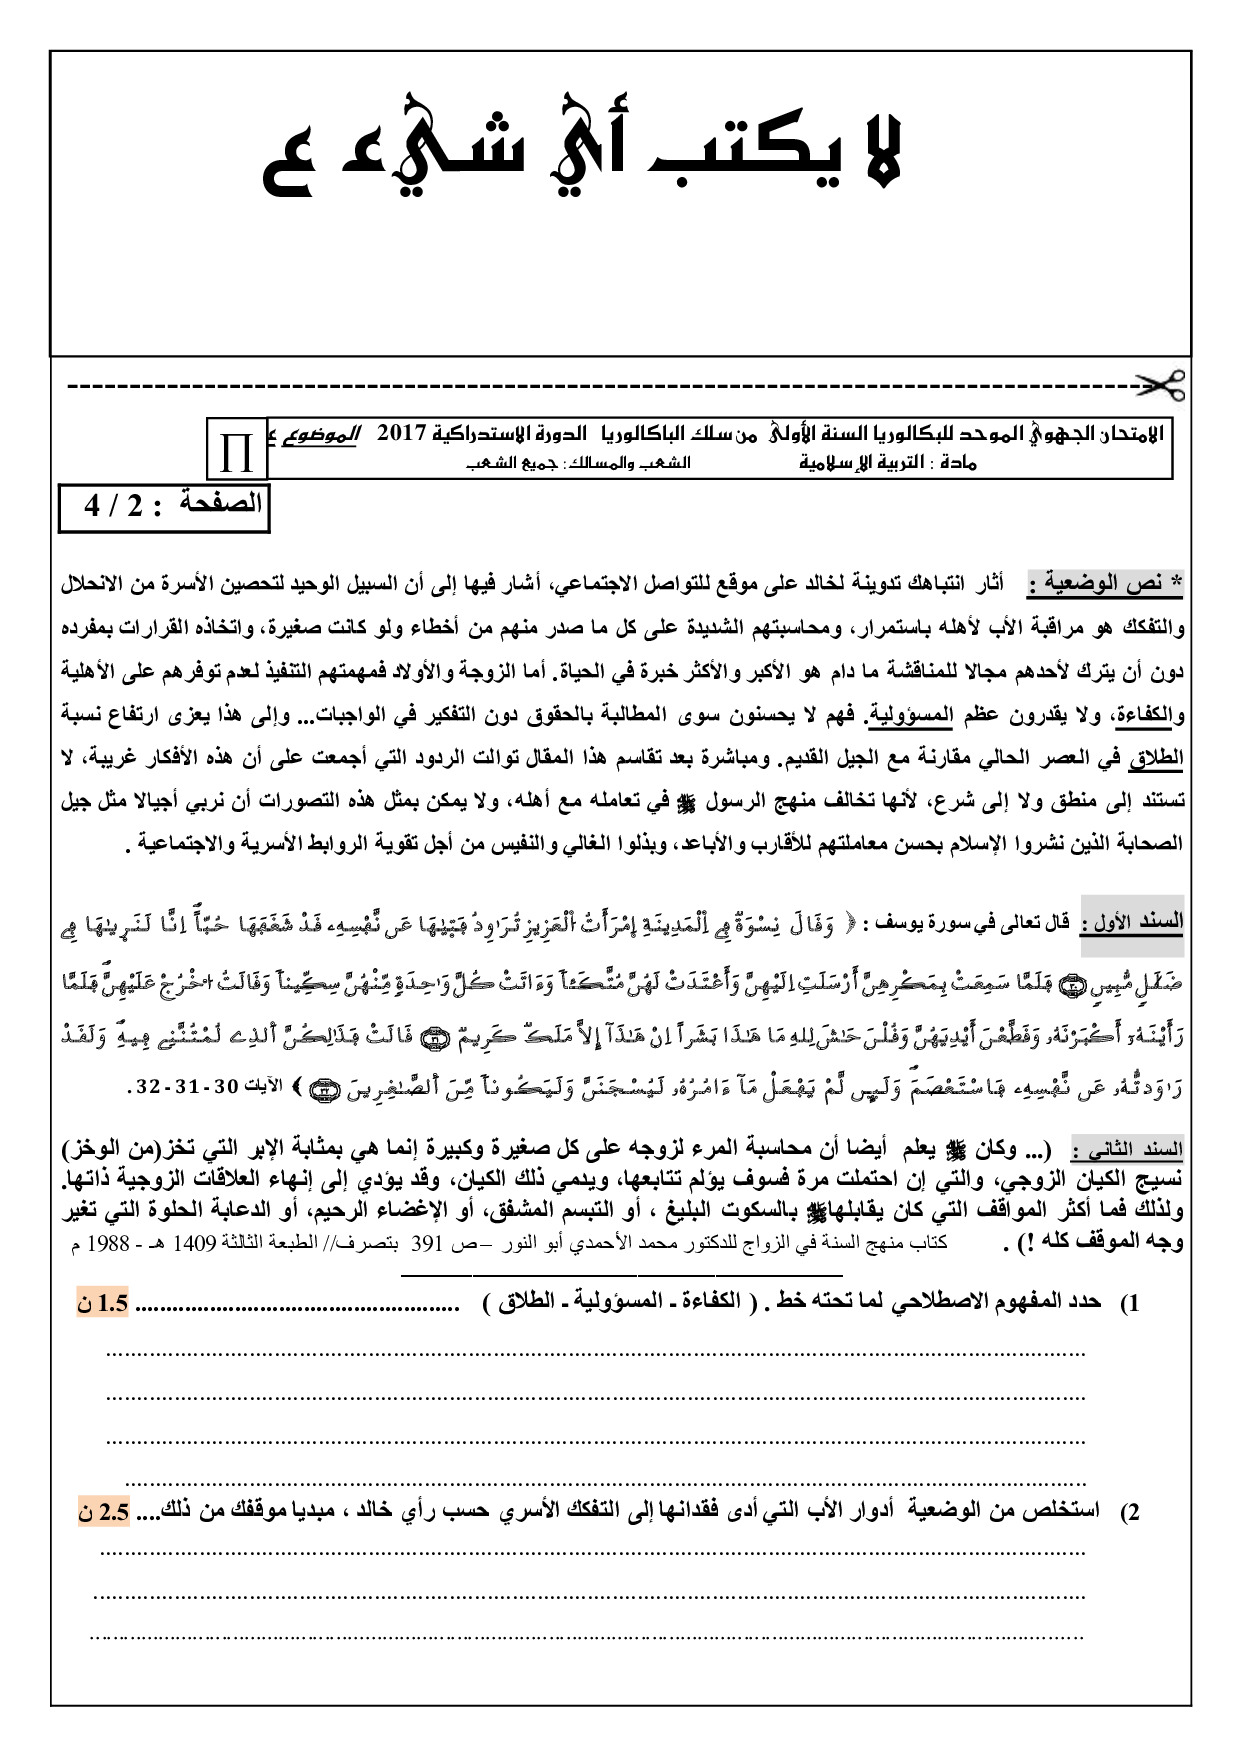 لا يكتب أي شيء ع
الامتحان الجهوي الموحد للبكالوريا السنة الأولى من سلك الباكالوريا الدورة الاستدراكية 2017 الموضوع ع
∏
مادة : التربية الإسلامية الشعب والمسالك: جميع الشعب
الصفحة : 2 / 4
* نص الوضعية : أثار انتباهك تدوينة لخالد على موقع للتواصل الاجتماعي، أشار فيها إلى أن السبيل الوحيد لتحصين الأسرة من الانحلال
والتفكك هو مراقبة الأب لأهله باستمرار، ومحاسبتهم الشديدة على كل ما صدر منهم من أخطاء ولو كانت صغيرة، واتخاذه القرارات بمفرده
دون أن يترك لأحدهم مجالا للمناقشة ما دام هو الأكبر والأكثر خبرة في الحياة. أما الزوجة والأولاد فمهمتهم التنفيذ لعدم توفرهم على الأهلية
والكفاءة، ولا يقدرون عظم المسؤولية. فهم لا يحسنون سوى المطالبة بالحقوق دون التفكير في الواجبات... وإلى هذا يعزى ارتفاع نسبة
الطلاق في العصر الحالي مقارنة مع الجيل القديم. ومباشرة بعد تقاسم هذا المقال توالت الردود التي أجمعت على أن هذه الأفكار غريبة، لا
تستند إلى منطق ولا إلى شرع، لأنها تخالف منهج الرسول ﷺ في تعامله مع أهله، ولا يمكن بمثل هذه التصورات أن نربي أجيالا مثل جيل
الصحابة الذين نشروا الإسلام بحسن معاملتهم للأقارب والأباعد، وبذلوا الغالي والنفيس من أجل تقوية الروابط الأسرية والاجتماعية .
السند الأول : قال تعالى في سورة يوسف : ﴿ وَقَالَ نِسْوَةٌ فِي اِلْمَدِينَةِ اِمْرَأَتُ اُلْعَزِيزِ تُرَٰوِدُ فَتَيٰهَا عَن نَّفْسِهِۦ قَدْ شَغَفَهَا حُبّاًۖ اِنَّا لَنَرَيٰهَا فِي
ضَلَٰلٖ مُّبِينٖ ٣٠ فَلَمَّا سَمِعَتْ بِمَكْرِهِنَّ أَرْسَلَتِ اِلَيْهِنَّ وَأَعْتَدَتْ لَهُنَّ مُتَّكَـٔاٗ وَءَاتَتْ كُلَّ وَٰحِدَةٖ مِّنْهُنَّ سِكِّيناٗ وَقَالَتُ اُ۟خْرُجْ عَلَيْهِنَّۖ فَلَمَّا
رَأَيْنَهُۥٓ أَكْبَرْنَهُۥ وَقَطَّعْنَ أَيْدِيَهُنَّ وَقُلْنَ حَٰشَ لِلهِ مَا هَٰذَا بَشَراً اِنْ هَٰذَآ إِلَّا مَلَكٞ كَرِيمٞ ٣١ قَالَتْ فَذَٰلِكُنَّ اَ۬لذِي لُمْتُنَّنِي فِيهِۖ وَلَقَدْ
رَٰوَدتُّهُۥ عَن نَّفْسِهِۦ فَاسْتَعْصَمَۖ وَلَئِن لَّمْ يَفْعَلْ مَآ ءَامُرُهُۥ لَيُسْجَنَنَّ وَلَيَكُوناٗ مِّنَ اَ۬لصَّٰغِرِينَ ٣٢ ﴾ الآيات 30 - 31 - 32 .
السند الثاني : (... وكان ﷺ يعلم أيضا أن محاسبة المرء لزوجه على كل صغيرة وكبيرة إنما هي بمثابة الإبر التي تخز(من الوخز)
نسيج الكيان الزوجي، والتي إن احتملت مرة فسوف يؤلم تتابعها، ويدمي ذلك الكيان، وقد يؤدي إلى إنهاء العلاقات الزوجية ذاتها.
ولذلك فما أكثر المواقف التي كان يقابلهاﷺ بالسكوت البليغ ، أو التبسم المشفق، أو الإغضاء الرحيم، أو الدعابة الحلوة التي تغير
وجه الموقف كله !) . كتاب منهج السنة في الزواج للدكتور محمد الأحمدي أبو النور – ص 391 بتصرف// الطبعة الثالثة 1409 هـ - 1988 م
1) حدد المفهوم الاصطلاحي لما تحته خط . ( الكفاءة ـ المسؤولية ـ الطلاق ) .................................................... 1.5 ن
2) استخلص من الوضعية أدوار الأب التي أدى فقدانها إلى التفكك الأسري حسب رأي خالد ، مبديا موقفك من ذلك.... 2.5 ن